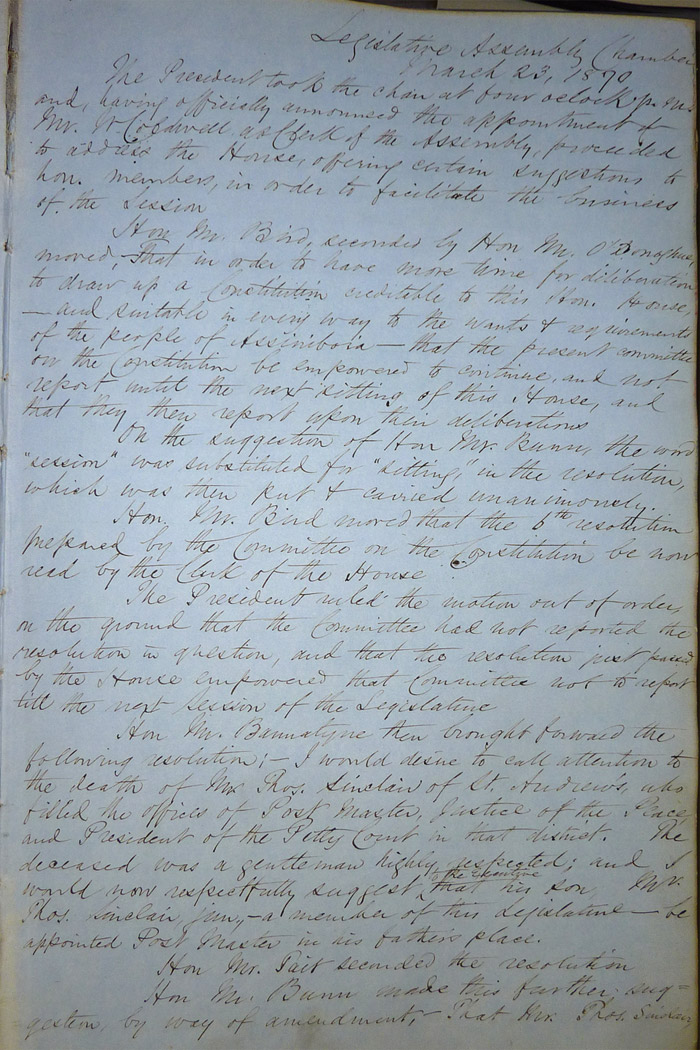 Legislative Assembly Chamber
March 23, 1870
The President took the chair at four oclock p. m.
and, having officially announced the appointment of
Mr. W Coldwell as Clerk of the Assembly, proceeded
to address the House, offering certain suggestions to
hon. members, in order to facilitate the business
of the Session
Hon Mr. Bird, seconded by Hon Mr. O'Donoghue,
moved, That in order to have more time for deliberation
to draw up a Constitution creditable to this Hon. House
— and suitable in every way to the wants & requirements
of the people of Assiniboia — that the present committee
on the Constitution be empowered to continue, and not
report until the next sitting of this House, and
that they then report upon their deliberations
On the suggestion of Hon Mr. Bunn, the word
"session" was substituted for "sitting," in the resolution,
which was then put & carried unanimously.
Hon. Mr. Bird moved that the 6th resolution
prepared by the Committee on the Constitution be now
read by the Clerk of the House
The President ruled the motion out of order,
on the ground that the Committee had not reported the
resolution in question, and that the resolution just passed
by the House empowered that Committee not to report
till the next Session of the Legislative
Hon Mr. Bannatyne then brought forward the
following resolution; — I would desire to call attention to
the death of Mr. Thos. Sinclair of St. Andrew's, who
filled the offices of Post Master, Justice of the Peace,
and President of the Petty Court in that district. The
deceased was a gentleman highly respected; and I
to the executive
would now respectfully suggest ^ that his son, Mr.
Thos. Sinclair, jun., — a member of this Legislature — be
appointed Post Master in his father's place.
Hon Mr. Tait seconded the resolution
Hon Mr. Bunn made this further sug=
gestion, by way of amendment, — That Mr. Thos. Sinclair